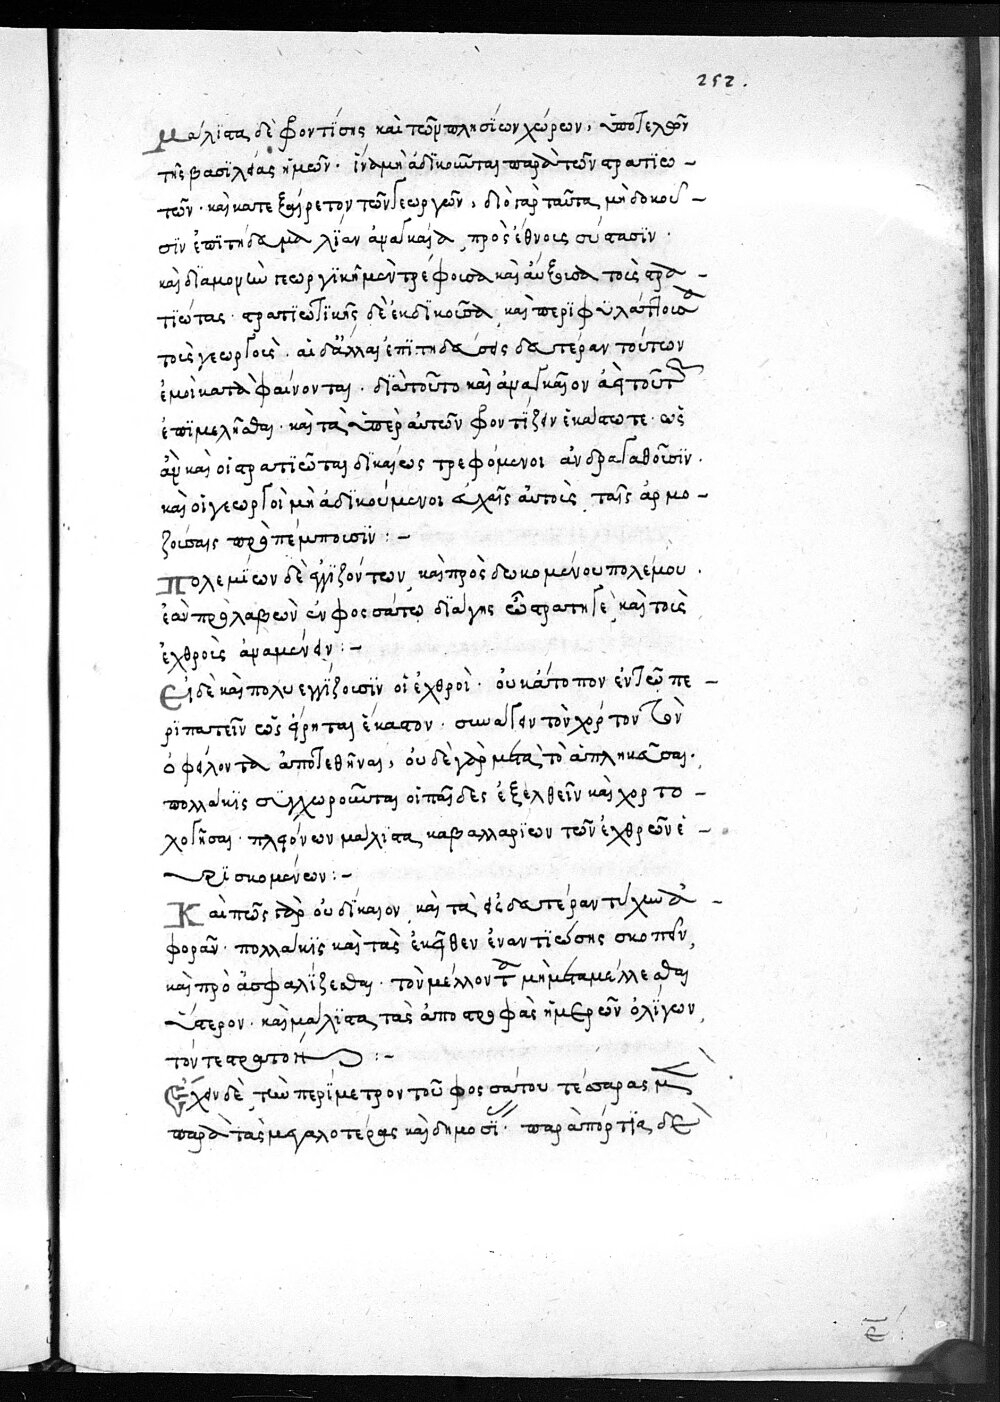 252.
μάλιστα δὲ φροντίσῃς καὶ τῶν πλησίων χώρων, ὑποτελῶν
τῆς βασιλείας ἡμῶν· ἵνα μὴ ἀδικοῦνται παρὰ τῶν στρατιω -
τῶν· καὶ κατεξαίρετον τῶν γεωργῶν, δύο γὰρ ταῦτα μὴ δοκοῦ -
σιν ἐπιτηδεύματα λίαν ἀναγκαῖα πρὸς ἔθνους σύστασιν·
καὶ διαμονὴν γεωργικὴ μὲν τρέφουσα καὶ αὔξουσα τοὺς στρα -
τιώτας· στρατιωτικὴ δὲ ἐκδικοῦσα καὶ περιφυλάττουσα
τοὺς γεωργούς· αἱ δ' ἄλλαι ἐπιτηδεύσεις δεύτεραι τούτων
ἐμοὶ καταφαίνονται· διὰ τοῦτο καὶ ἀναγκαῖον ἀεὶ τούτων
ἐπιμελεῖσθαι· καὶ τὰ ὑπὲρ αὐτῶν φροντίζειν ἑκάστοτε· ὡς
ἂν καὶ οἱ στρατιῶται δικαίως τρεφόμενοι ἀνδραγαθοῦσιν·
καὶ οἱ γεωργοὶ μὴ ἀδικούμενοι εὐχαῖς αὐτοὺς ταῖς ἁρμο -
ζούσαις προπέμπουσιν: -
πολεμίων δὲ ἐγγιζόντων καὶ προσδοκομένου πολέμου·
ἐὰν προλαβὼν ἐν φοσσάτῳ διάγῃς ὦ στρατηγὲ καὶ τοὺς
ἐχθροὺς ἀναμένειν: -
Εἰ δὲ καὶ πολὺ ἐγγίζουσιν οἱ ἐχθροί· οὐκ ἄτοπον ἐν τῷ πε -
ριπατεῖν ὡς εἴρηται ἕκαστον· συνάγειν τὸν χόρτον τὸν
ὀφείλοντα ἀποτεθῆναι, οὐδὲ γὰρ μετὰ τὸ ἀπληκεῦσαι·
πολλάκις συγχωροῦνται οἱ παῖδες ἐξελθεῖν καὶ χορτο -
λογῆσαι· πλειόνων μάλιστα καβαλλαρίων τῶν ἐχθρῶν εὑ -
ρισκομένων: -
Καὶ πῶς γὰρ οὐ δίκαιον καὶ τὰς
φορὰν· πολλάκις καὶ τὰς ἐκεῖθεν ἐναντιώσεις σκοπεῖν,
καὶ προασφαλίζεσθαι· τὸν μέλλοντα μὴ μεταμέλλεσθαι
ὕστερον· καὶ μάλιστα τὰς ἀποτροφὰς ἡμερῶν ὀλίγων
τόν τε στρατόν: -
Ἔχειν δὲ τὴν περίμετρον τοῦ φοσσάτου τέσσαρας μὲν
πόρτας μεγαλοτέρας καὶ δημοσίας· παραπόρτια δὲ
ε